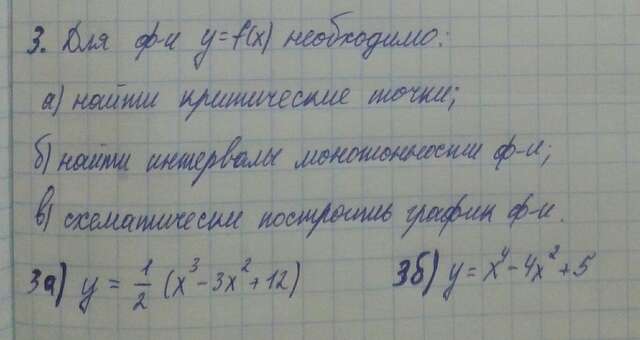 3. Для ф-и y=f(x) необходимо:
а) найти критические точки;
б) найти интервалы монотонности ф-и;
в) схематически построить график ф-и.
3а) y = 1/2 (x³ - 3x² + 12) 3б) y = x⁴ - 4x² + 5